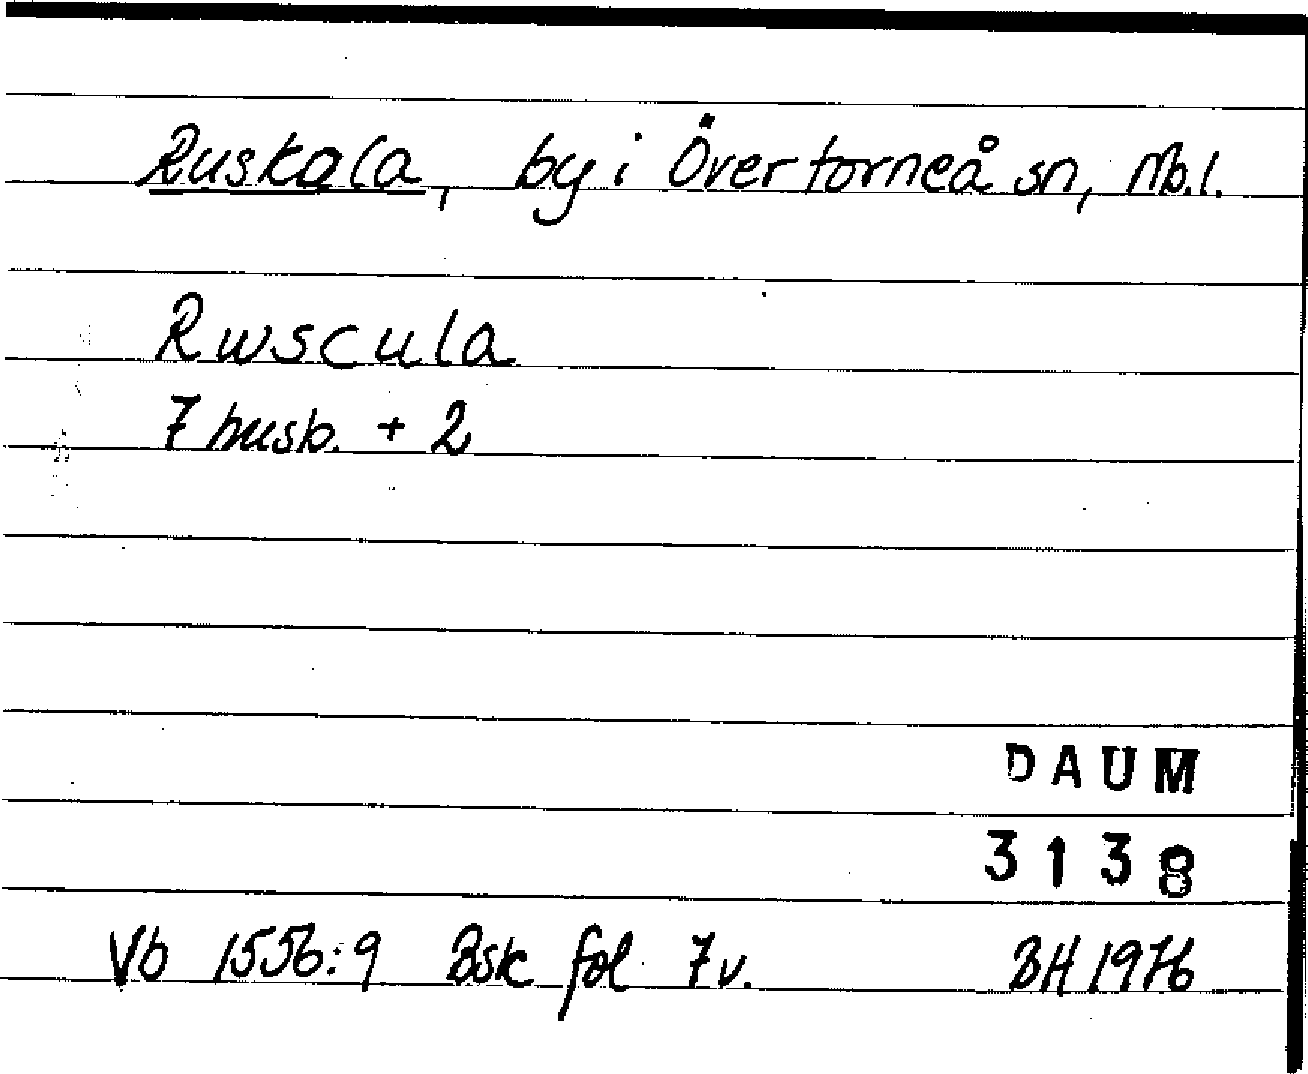 Ruskola, by i Övertorneå sn, Nb.l.
Rwscula
7 husb. + 2
DAUM
3138
Vb 1556:9 Bsk fol 7v. BH 1976